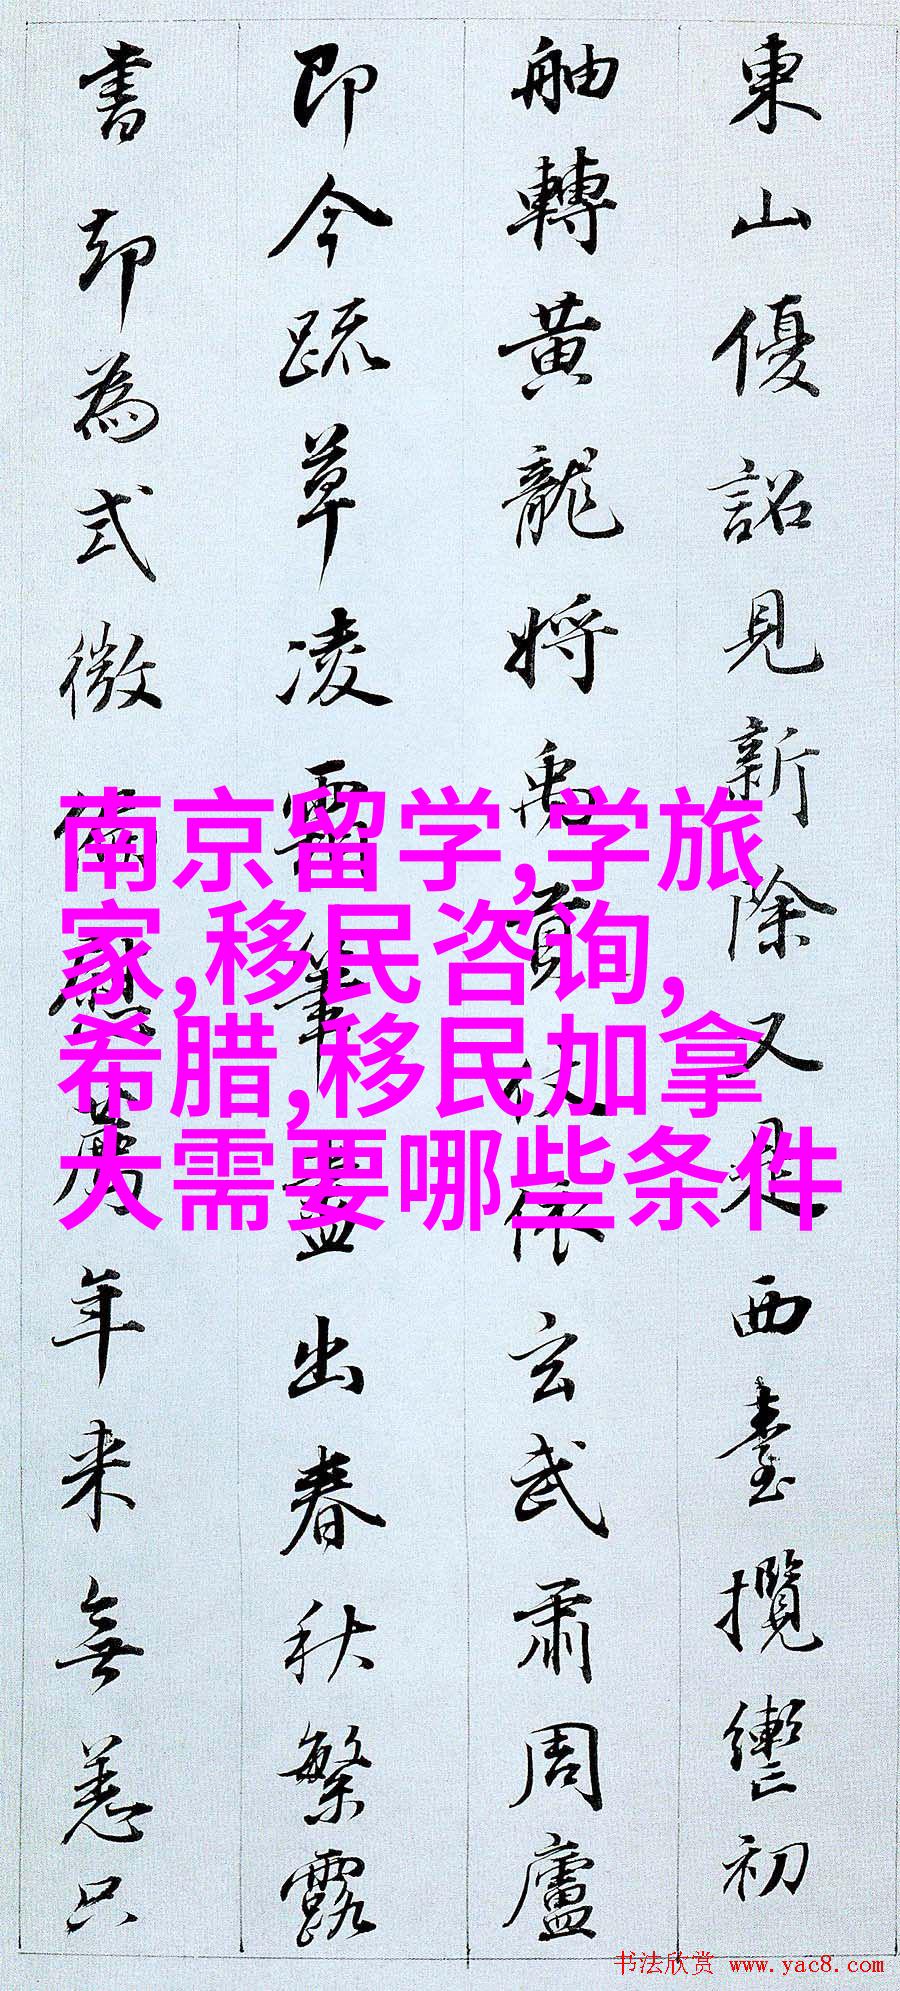 東山優詔見新除又是西臺攬轡初
舳轉黃龍將禹貢仗依玄武肅周廬
即今疏草凌雲筆盡出春秋繁露
書却為式微 應 年来無恙只
南京留学,学旅
家,移民咨询,
希腊,移民加拿
大需要哪些条件
书法欣赏 www.yac8.com